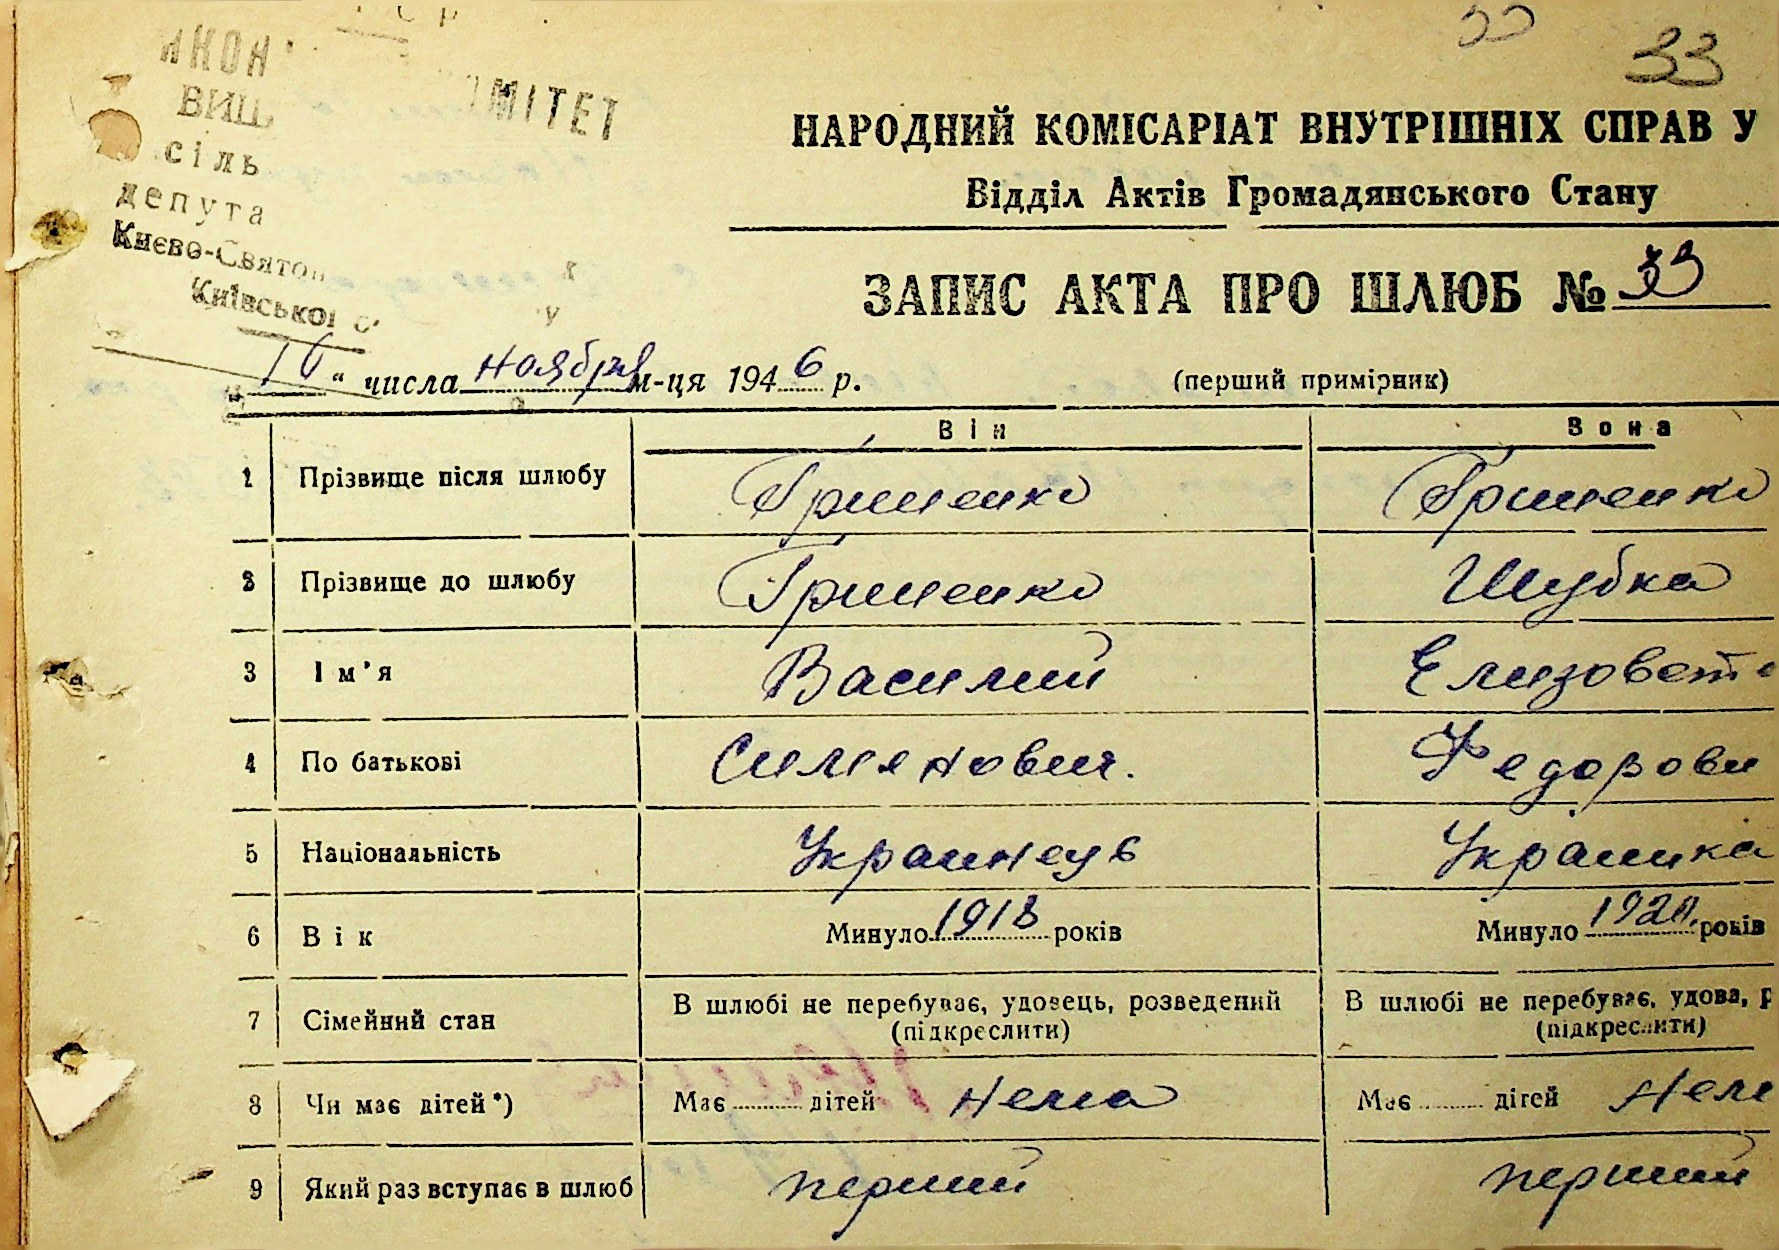 33
33
ВИШ
сіль
депута
Києво-Святош
Київської о
НАРОДНИЙ КОМІСАРІАТ ВНУТРІШНІХ СПРАВ У
Відділ Актів Громадянського Стану
ЗАПИС АКТА ПРО ШЛЮБ № 33
" числа ноября м-ця 1946 р. (перший примірник)
Він Вона
1 Прізвище після шлюбу Гриценко Гриценко
2 Прізвище до шлюбу Гриценко Шубка
3 Ім'я Василий Елизовета
4 По батькові Симонович. Федорови
5 Національність Украинець Украинка
6 Вік Минуло 1918 років Минуло 1920 років
7 Сімейний стан В шлюбі не перебуває, удовець, розведений В шлюбі не перебуває, удова, р
(підкреслити) (підкреслити)
8 Чи має дітей*) Має дітей нема Має дітей нем
9 Який раз вступає в шлюб перший перший